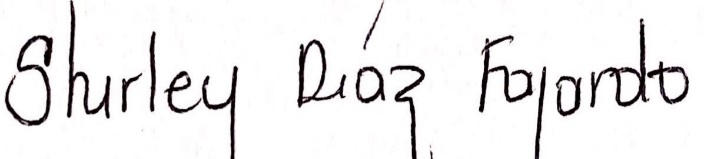 Shurley Díaz Fajardo